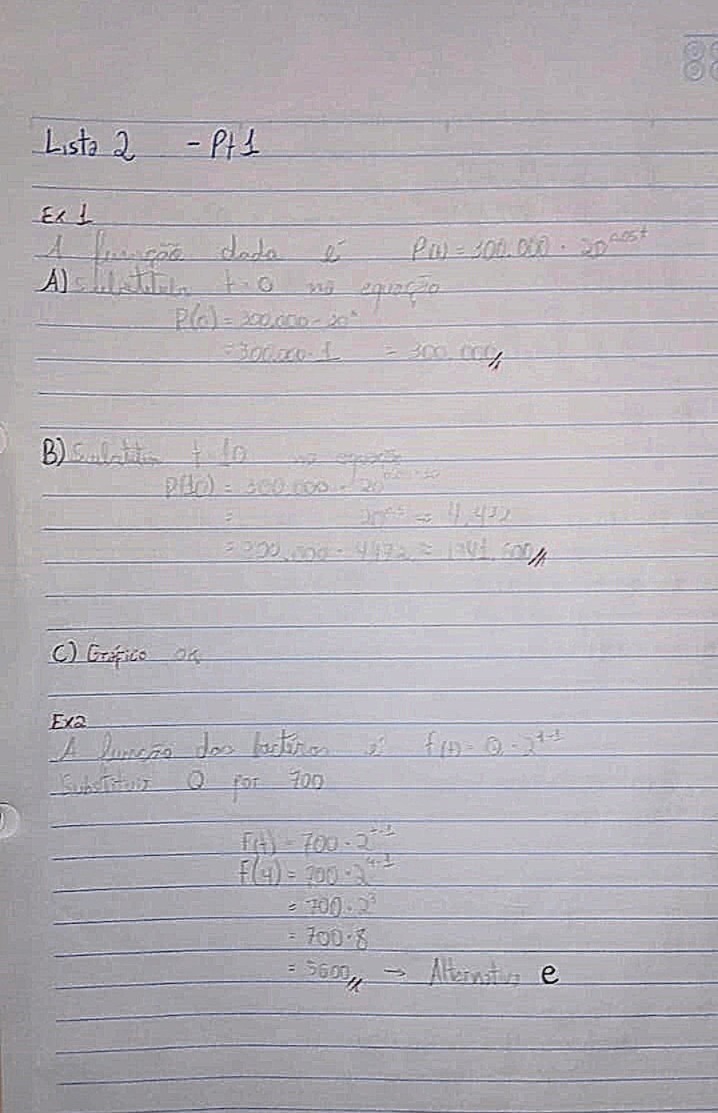 Lista 2 - Pt 1
Ex 1
A função dada é P(t) = 300.000 · 20^0,05t
A) Substituir t=0 na equação
P(0) = 300.000 · 20^0
= 300.000 · 1 = 300.000
B) Substituir t 10 na equação
P(10) = 300.000 · 20
= 20^0,5 = 4,472
= 300.000 · 4472 = 1341.600
C) Gráfico ok
Ex2
A função das bactérias é f(t) = Q · 2^t-1
Substituir Q por 700
F(t) = 700 · 2^t-1
f(4) = 700 · 2^4-1
= 700 · 2^3
= 700 · 8
= 5600 → Alternativa e